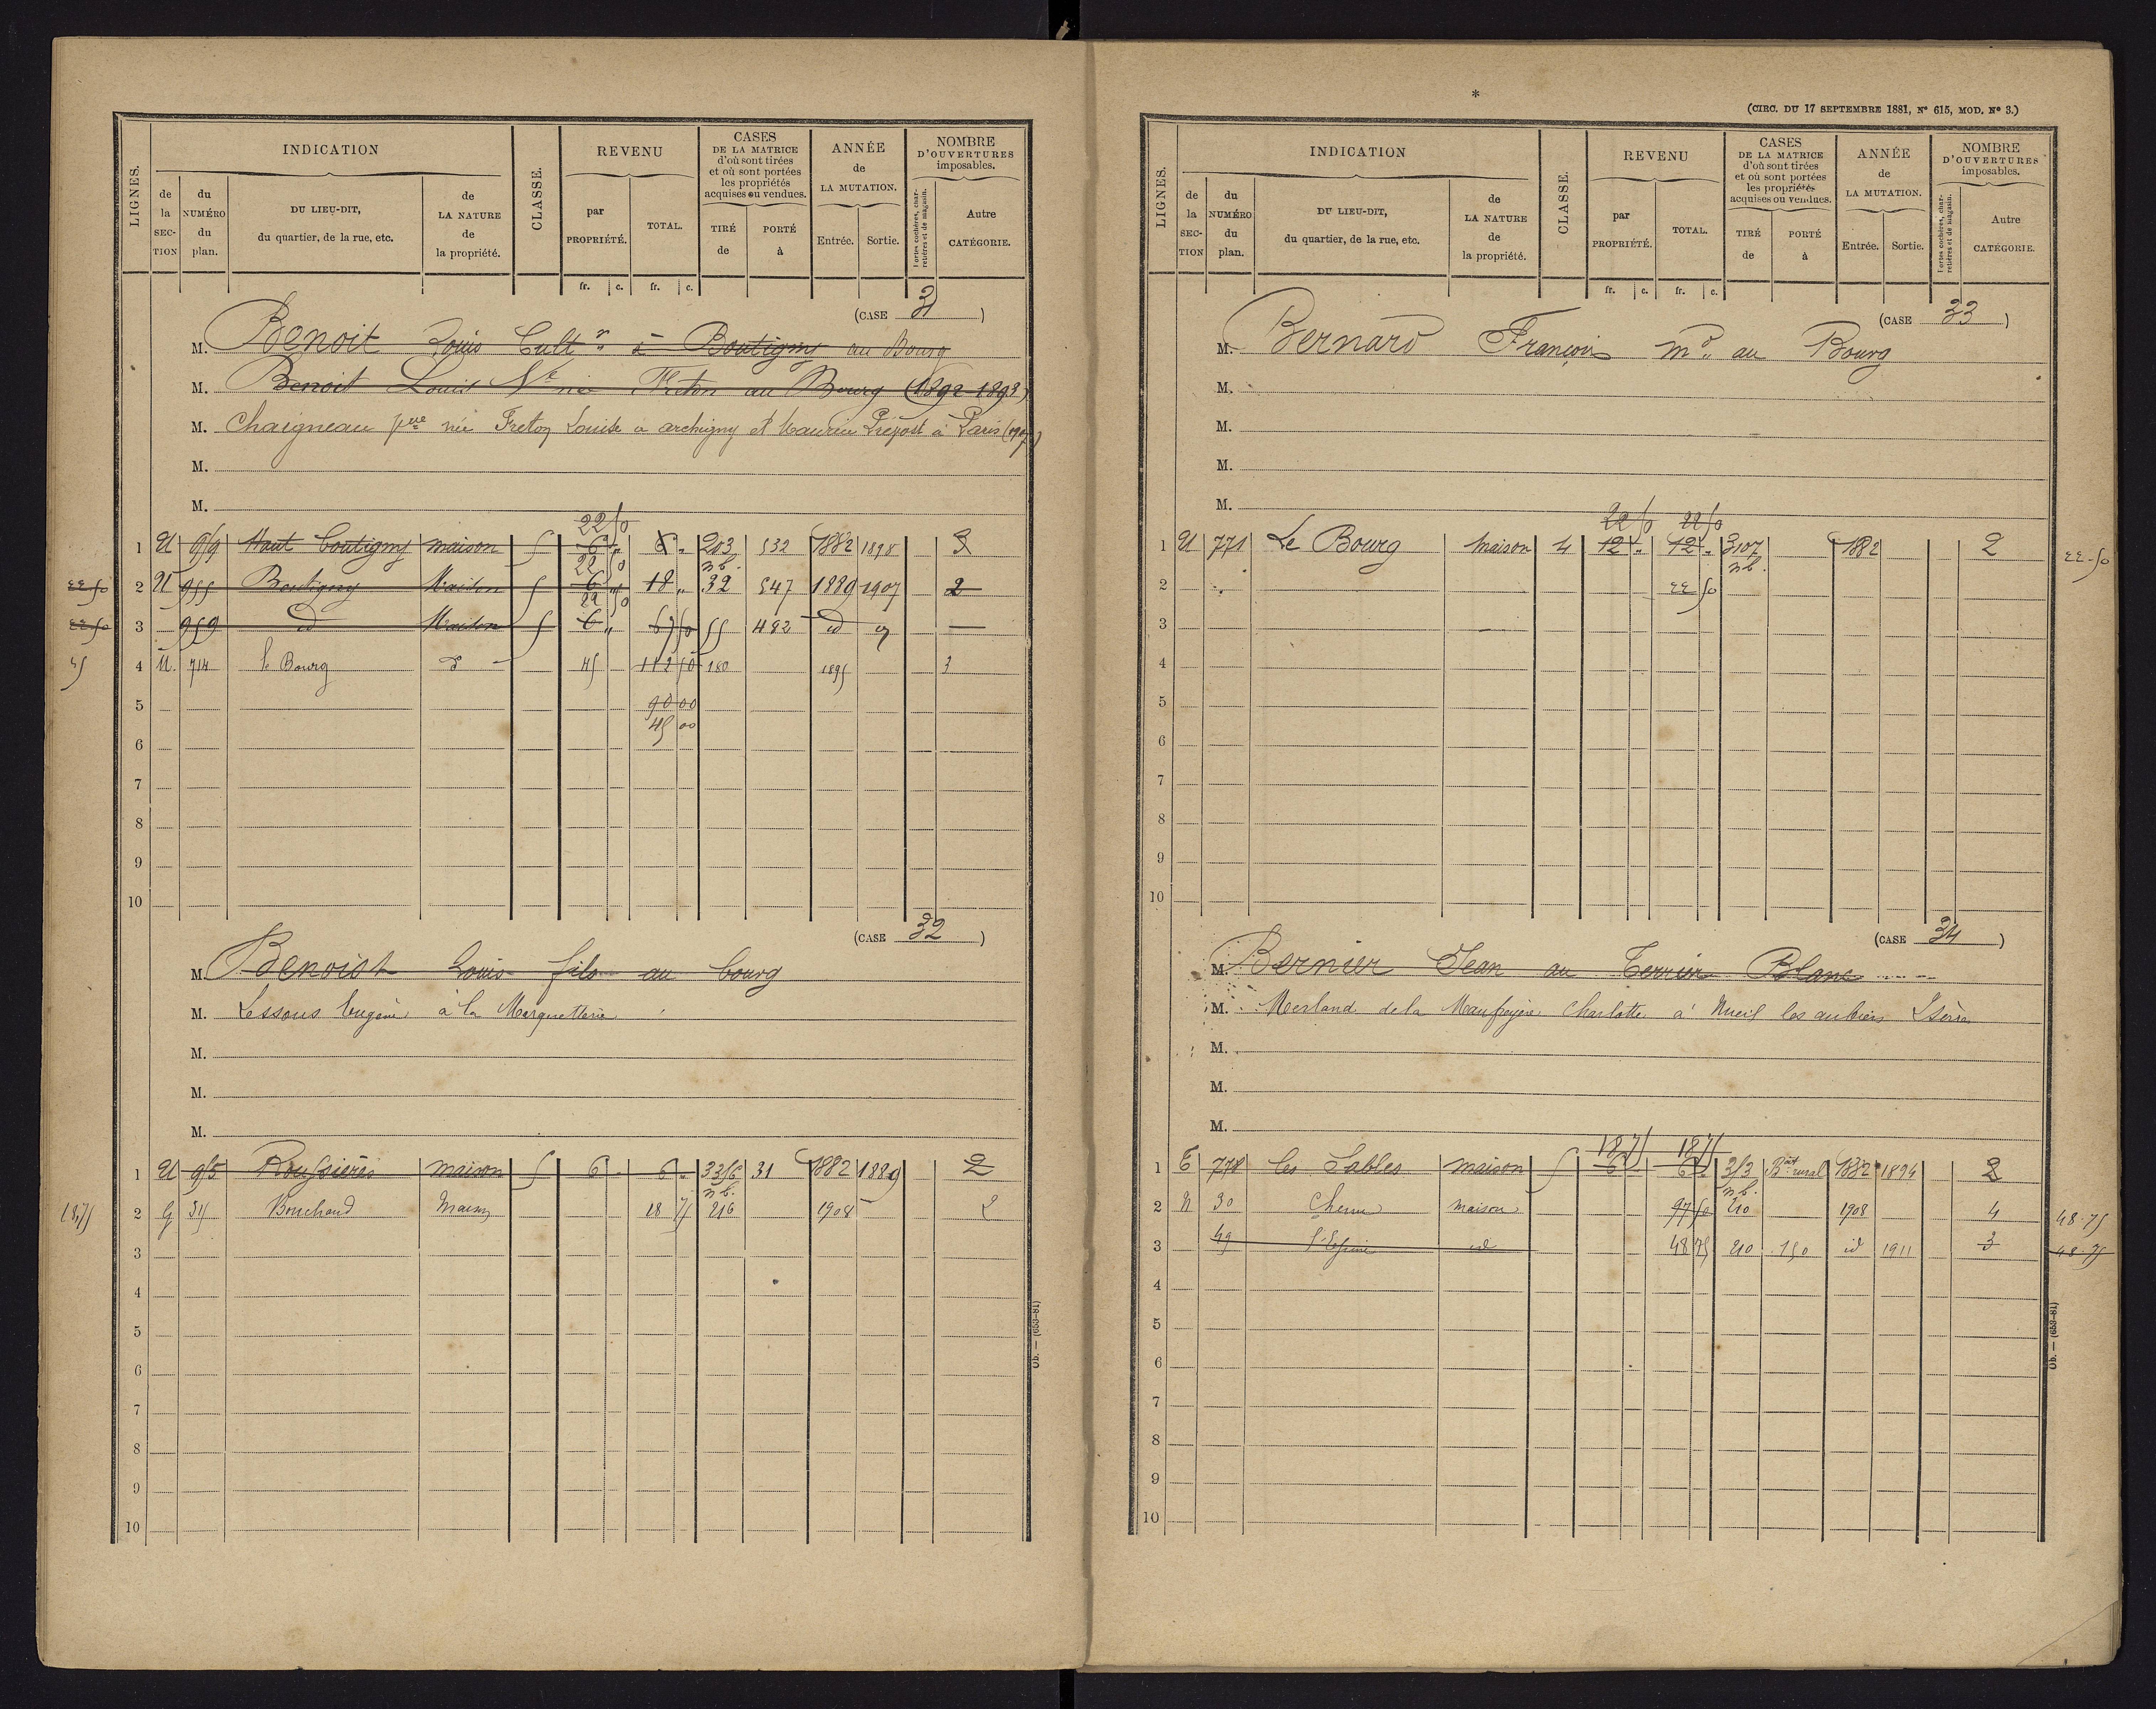 LIGNES.
INDICATION
de la SECTION
du NUMÉRO du plan.
DU LIEU-DIT, du quartier, de la rue, etc.
de LA NATURE de la propriété.
CLASSE.
REVENU
par PROPRIÉTÉ.
TOTAL.
CASES DE LA MATRICE d'où sont tirées et où sont portées les propriétés acquises ou vendues.
TIRÉ de
PORTÉ à
ANNÉE de LA MUTATION.
Entrée. Sortie.
NOMBRE D'OUVERTURES imposables.
Portes cochères, charretières et de magasin.
Autre CATÉGORIE.
fr. c. fr. c.
(CASE 31 )
M. Benoit Louis Cultr à Boutigny au Bourg
M. Benoit Louis Ve née Freton au Bourg (1892-1893)
M. Chaigneau née Freton Louise à archigny et Maurice Prépost à Paris
M.
M.
22 50
1 U 959 Haut Boutigny maison 5 6 " 6 " 203 532 1882 1898 3
22 50 n b.
22-50 2 U 955 Boutigny Maison 5 6 " 18 " 32 547 1889 1907 2
22 50
22-50 3 959 id Maison 5 6 " 67 50 55 482 id —
45 4 U. 714 le Bourg d° 45 112 50 180 1895 3
5 90 00
45 00
6
7
8
9
10
(CASE 32 )
M. Benoist Louis fils au bourg
M. Lessous Eugène à la Marquetterie
M.
M.
M.
1 U 955 Roussières maison 5 6 - 6 " 3356 31 1882 1889 2
n b.
18,75 2 G 315 Bouchaud Maison 18 75 216 1908 2
3
4
5
6
7
8
9
10
Ob. — (653-81)
*
(CIRC. DU 17 SEPTEMBRE 1881, N° 615, MOD. N° 3.)
LIGNES.
INDICATION
de la SECTION
du NUMÉRO du plan.
DU LIEU-DIT, du quartier, de la rue, etc.
de LA NATURE de la propriété.
CLASSE.
REVENU
par PROPRIÉTÉ.
TOTAL.
CASES DE LA MATRICE d'où sont tirées et où sont portées les propriétés acquises ou vendues.
TIRÉ de
PORTÉ à
ANNÉE de LA MUTATION.
Entrée. Sortie.
NOMBRE D'OUVERTURES imposables.
Portes cochères, charretières et de magasin.
Autre CATÉGORIE.
fr. c. fr. c.
(CASE 33 )
M. Bernard François md au Bourg
M.
M.
M.
M.
22 50 22 50
1 U 771 Le Bourg maison 4 12 " 12 " 3107 1882 2 22-50
n b.
2 22 50
3
4
5
6
7
8
9
10
(CASE 34 )
M. Bernier Jean au Terrier Blanc
M. Merland de la Maufreyère Charlotte à Nueil les aubiers 2 Sèvres
M.
M.
M.
18 75 18 75
1 E 778 les Sables maison 5 6 " 6 " 353 Bat rural 1882 1894 2
n b.
2 N 30 maison 97 50 210 1908 4 48-75
3 49 l'Espine id 48 75 210 150 id 1911 3 48-75
4
5
6
7
8
9
10
Ob. — (653-81)